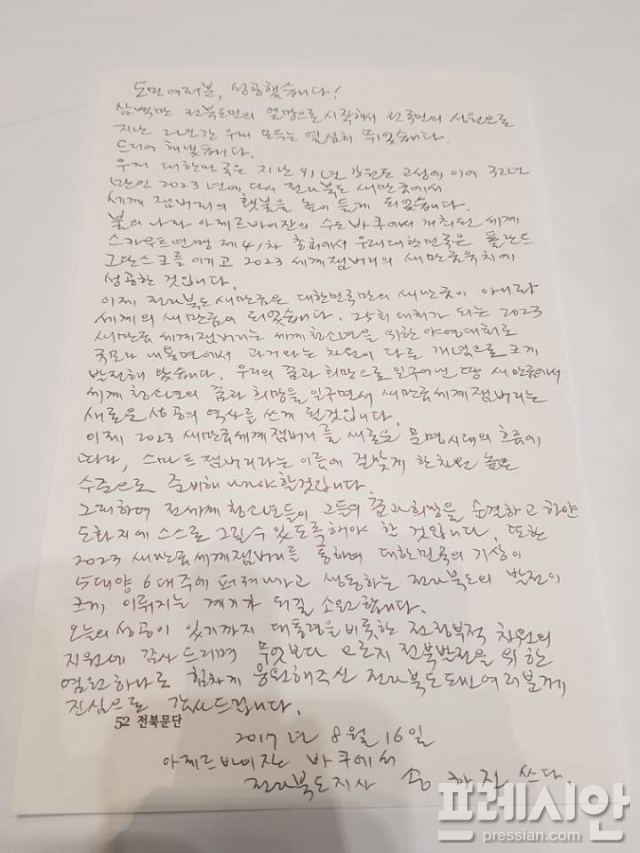 도민 여러분, 성공했습니다!
삼백만 전북도민의 열망으로 시작해서 전국민의 성원으로
지난 21년간 우리 모두는 열심히 뛰었습니다.
드디어 해냈습니다.
우리 대한민국은 지난 91년 강원도 고성에 이어 32년
만인 2023년에 다시 전라북도 새만금에서
세계잼버리의 횃불을 높이 들게 되었습니다.
불의 나라 아제르바이잔의 수도 바쿠에서 개최된 세계
스카우트연맹 제41차 총회에서 우리 대한민국은 폴란드
그단스크를 이기고 2023 세계잼버리의 새만금유치에
성공한 것입니다.
이제 전라북도 새만금은 대한민국만의 새만금이 아니라
세계의 새만금이 되었습니다. 25회 대회가 되는 2023
새만금 세계잼버리는 세계청소년을 위한 야영대회로
규모나 내용면에서 과거와는 차원이 다른 개념으로 크게
발전해 왔습니다. 우리의 꿈과 희망으로 일구어낸 땅 새만금에서
세계청소년의 꿈과 희망을 일구면서 새만금세계잼버리는
새로운 성공의 역사를 쓰게 될 것입니다.
이제 2023 새만금세계잼버리를 새로운 문명시대의 흐름에
따라, 스마트잼버리라는 이름에 걸맞게 한차원 높은
수준으로 준비해 나가야 할 것입니다.
그리하여 전세계 청소년들이 그들의 꿈과 희망을, 순결하고 하얀
도화지에 스스로 그릴 수 있도록 해야 한 것입니다. 또한
2023 새만금세계잼버리를 통하여 대한민국의 기상이
5대양 6대주에 퍼져나가고 생동하는 전라북도의 발전이
크게 이뤄지는 계기가 되길 소원합니다.
오늘의 성공이 있기까지 대통령을 비롯한 전정부적 차원의
지원에 감사드리며 무엇보다 오로지 전북발전을 위한
염원 하나로 힘차게 응원해주신 전라북도 도민 여러분께
진심으로 감사드립니다.
52 전북문단
2017년 8월 16일
아제르바이잔 바쿠에서
전라북도지사 송하진 쓰다.
프레시안
pressian.com